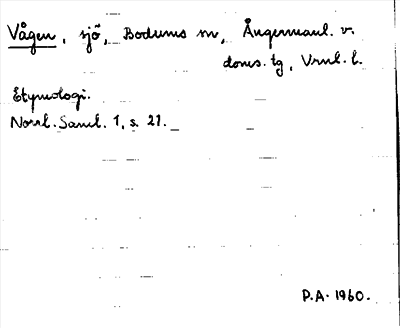 Vågen, sjö, Bodums sn, Ångermanl. v.
doms. tg, Vrnl. l.
Etymologi.
Norrl. Saml. 1, s. 21.
P.A. 1960.